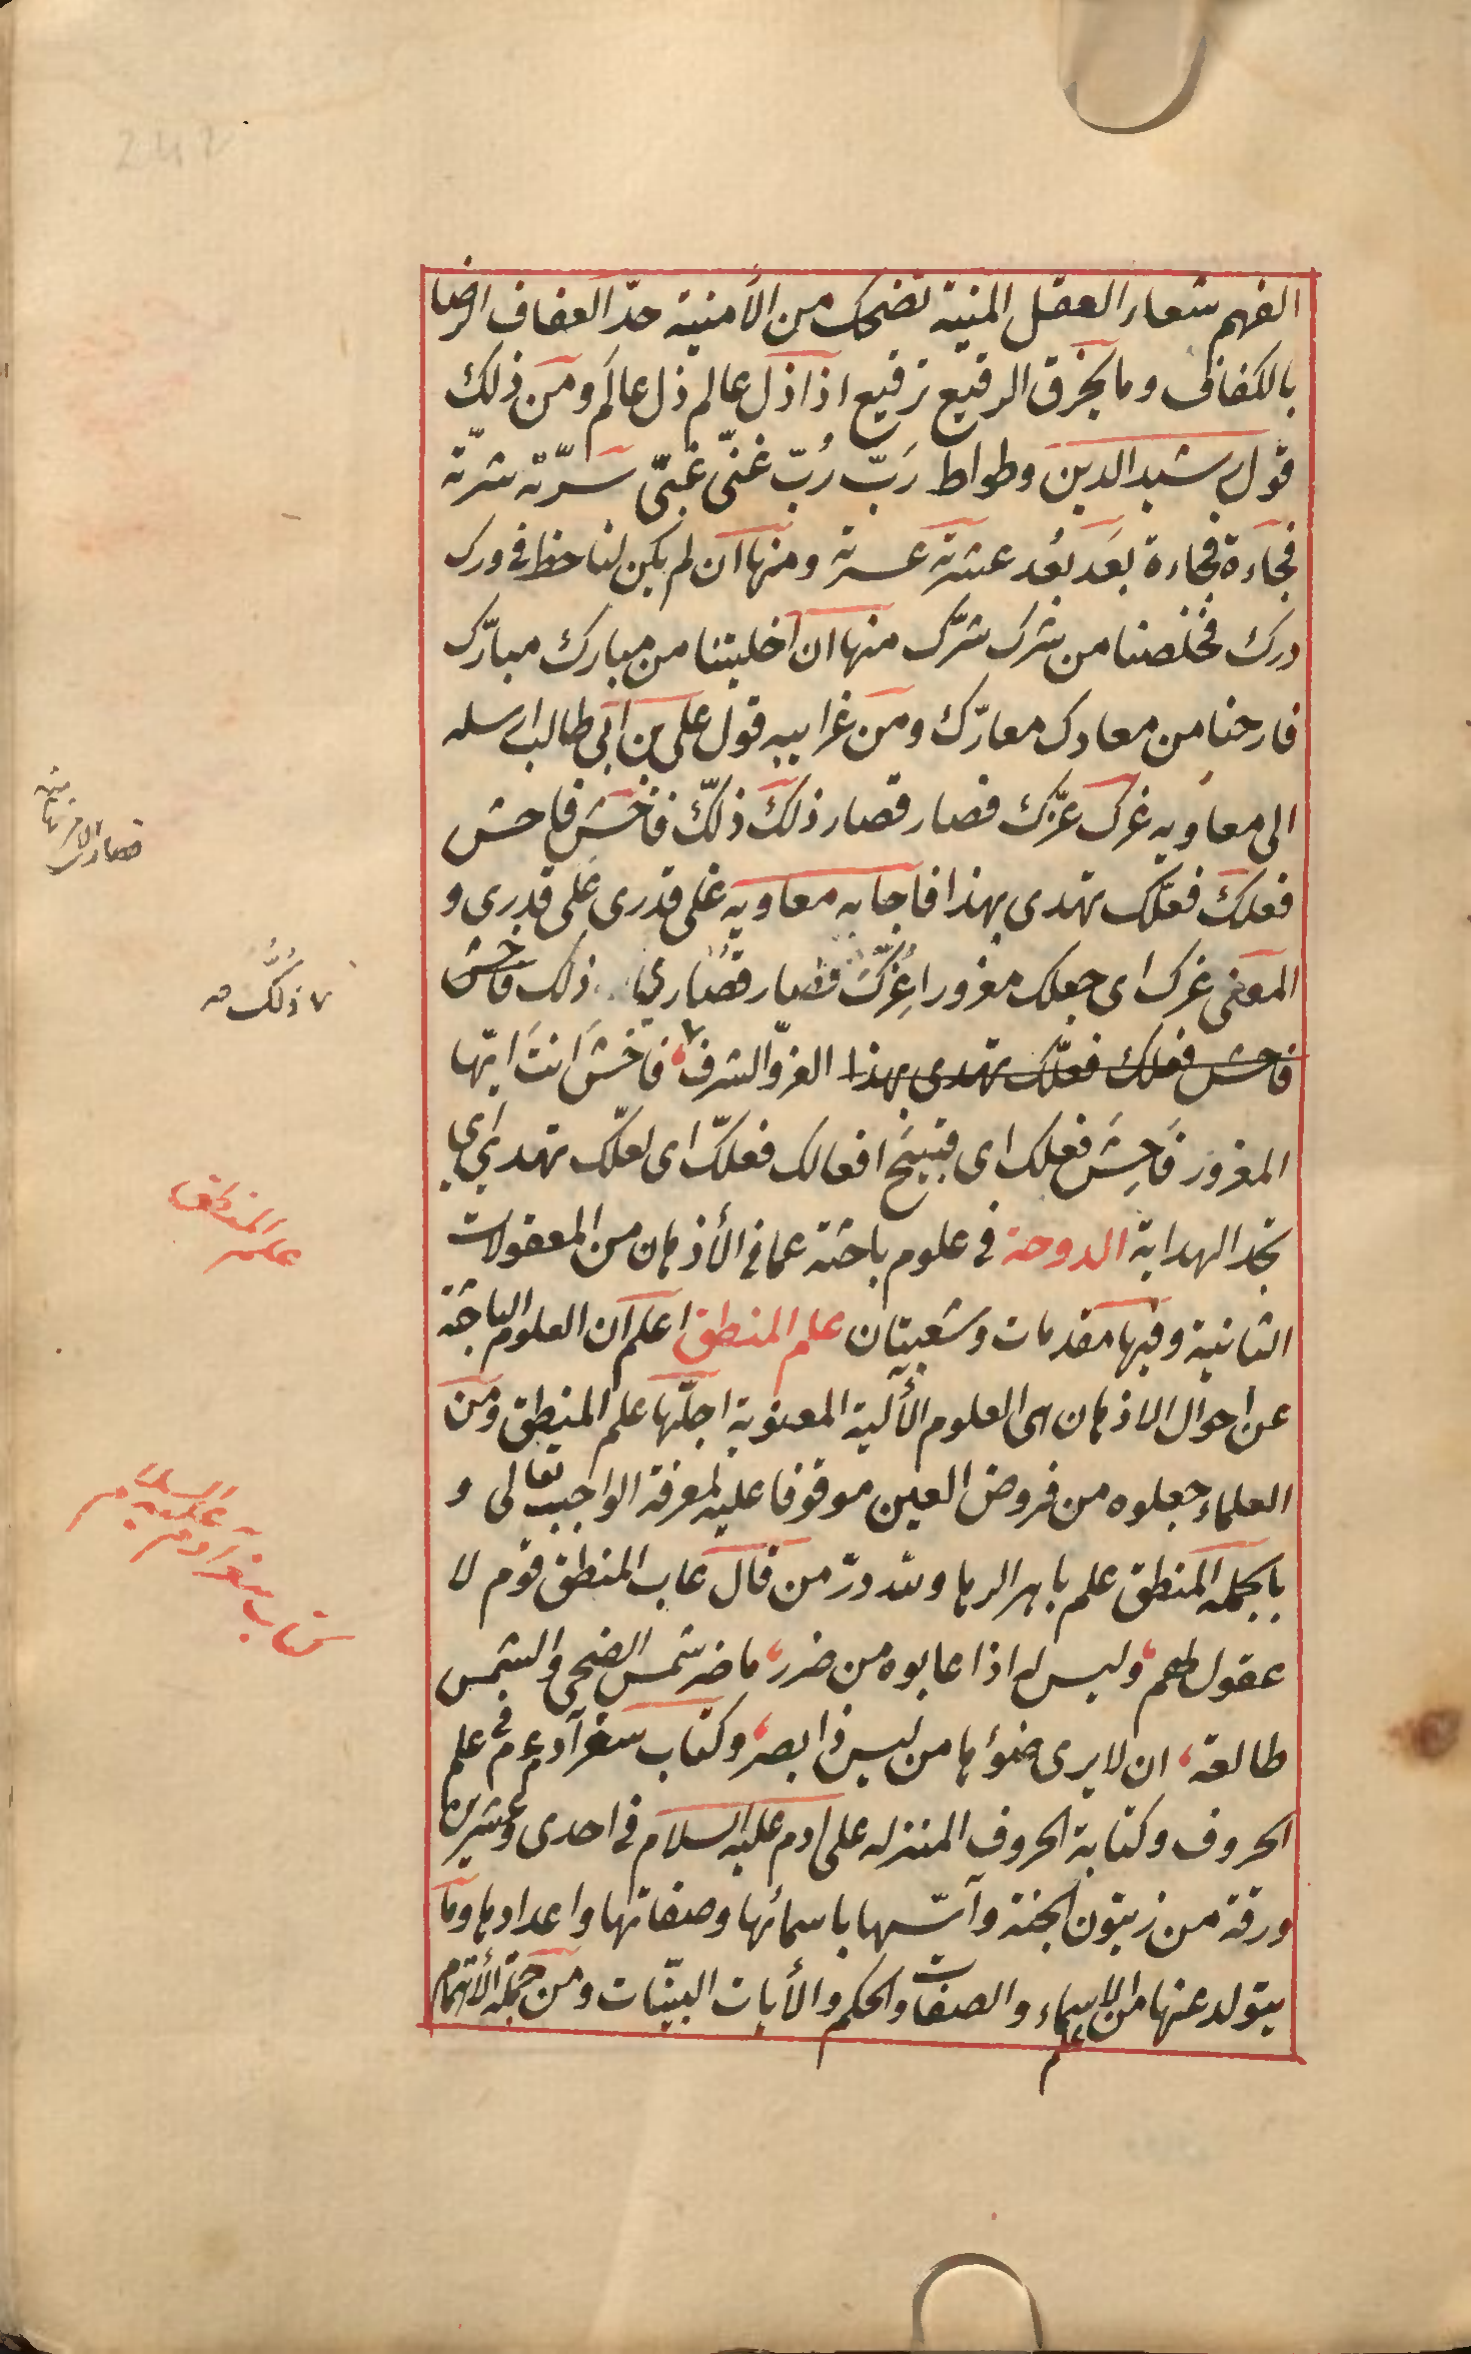 الفهم شعار العقل المنية تضحك من الأمنية حدّ العفاف الرضا
بالكفاف وما يخرق الرقيع ترقيع اذا ذل عالم ذل عالَم ومن ذلك
قول رشيد الدين وطواط رَبّ رُبّ غنىّ غبىّ سرّته شرّته
فجاءة فجاءة بَعد بُعد عشرته عسرته ومنها ان لم يكن لنا حظ فى ورك
درك فخلصنا من شرك شرّك منها ان اخليتنا من مبارك مبارّك
فارحنا من معادك معارّك ومن غرايبه قول على بن ابى طالب ارسله
الى معاويه غرك عزّك فصار قصار ذلك ذلّك فاخش فاحش
فعلك فعلّك تهدى بهذا فاجابه معاويه على قدرى غلى قدرى و
المعنى غرك اى جعلك مغرورا عِزُّك فصار قصارى ذلك فاخش
فاحش فعلك فعلّك تهدى بهذا العز والشرف فاخشَ انتَ ايها
المغرور فَاحِشَ فعلك اى قبيح افعالك فعلّك اى لعلّك تهدى اى
تجد الهداية الدوحة فى علوم باحثة عما فى الأذهان من المعقولات
الثانية وفيها مقدمات وشعبتان علم المنطق اعلم ان العلوم الباحثة
عن احوال الاذهان هى العلوم الآلية المعنوية اجلّها علم المنطق ومن
العلماء جعلوه من فروض العين موقوفا عليه لمعرفة الواجب تعالى و
بالجمله المنطق علم باهر البها ولله درّ من قال عاب المنطق قوم لا
عقول لهم وليس له اذا عابوه من ضرر ما ضر شمس الضحى والشمس
طالعة ان لا يرى ضوءها من ليس ذا بصر وكتاب سفر آدم ع م فى علم
الحروف وكتابة الحروف المنزله على ادم عليه السلام فى احدى وعشرين
ورقة من زيتون الجنة وآتيها باسمائها وصفاتها واعدادها وما
يتولد عنها من الاسماء والصفات والحكم والأيات البينّات ومن جملة الأتمام
علم
ذلّك صه
علم المنطق
كتاب سفر ادم عليه السلام